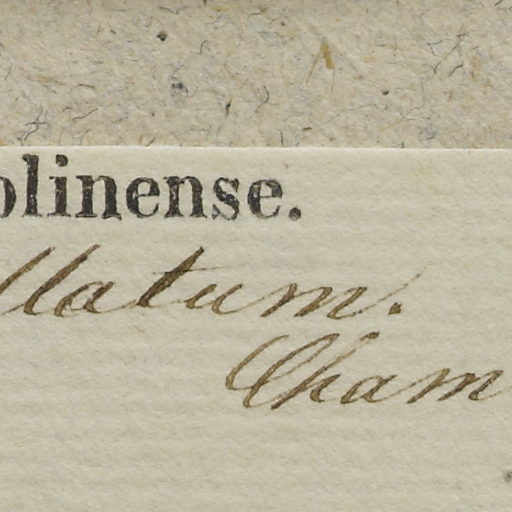 olinense.
llatum.
Cham